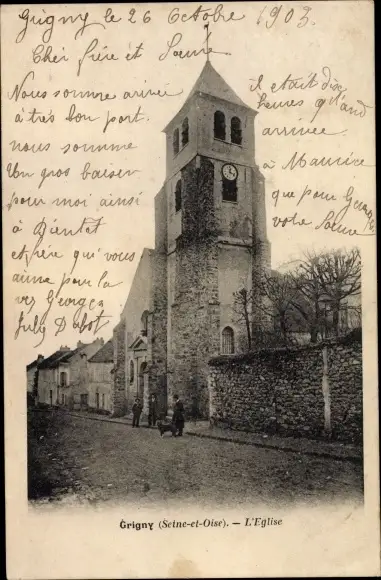 Grigny le 26 Octobre 1903
Cher frère et Sœur
Nous somme arrivé
à très bon port.
nous somme
Un gros baiser
pour moi ainsi
à Bientot
et frère qui vous
aime pour la
vie Georges
July
il etait dix
heures quand
arrivée
à Maurice
que pour Georges
votre Sœur
Grigny (Seine-et-Oise). — L'Eglise